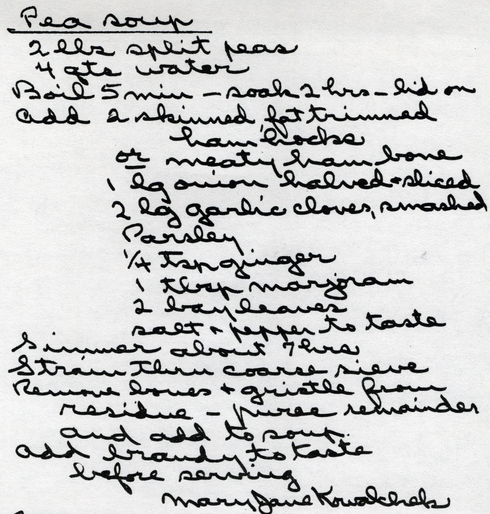 Pea soup
2 lbs split peas
4 qts water
Boil 5 min - soak 2 hrs - lid on
add 2 skinned, fat trimmed
ham hocks
or meaty ham bone
1 lg onion halved + sliced
2 lg garlic cloves, smashed
Parsley
1/4 tsp ginger
1 tbsp marjoram
2 bay leaves
salt + pepper to taste
Simmer about 7 hrs
Strain thru coarse sieve
Remove bones + gristle from
residue - puree remainder
and add to soup.
add brandy to taste
before serving
Mary Jane Kowalchek